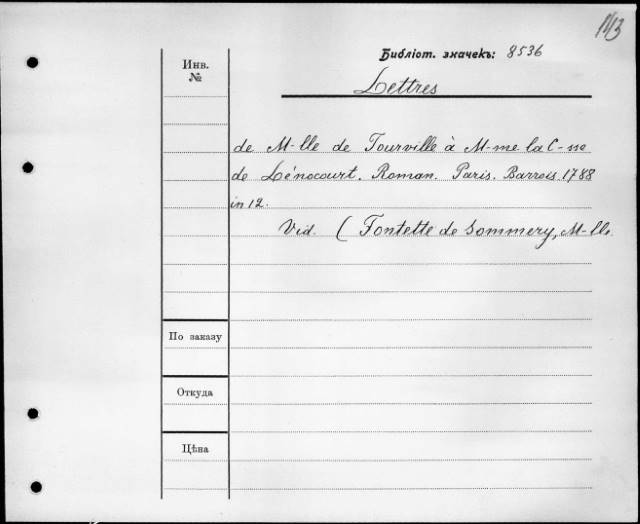 1113
Библіот. значекъ: 8536
Инв.
№
Lettres
de M-lle de Tourville à M-me la C-sse
de Lénocourt. Roman. Paris. Barrois 1788
in 12.
Vid. ( Fontette de Sommery, M-lle.
По заказу
Откуда
Цѣна